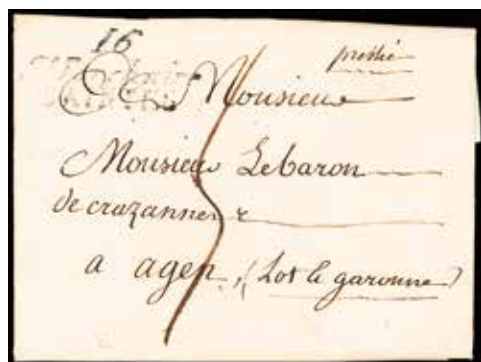 16
pressée
Monsieur
Monsieur Lebaron
de crazannes
5
a agen, (Lot le garonne)